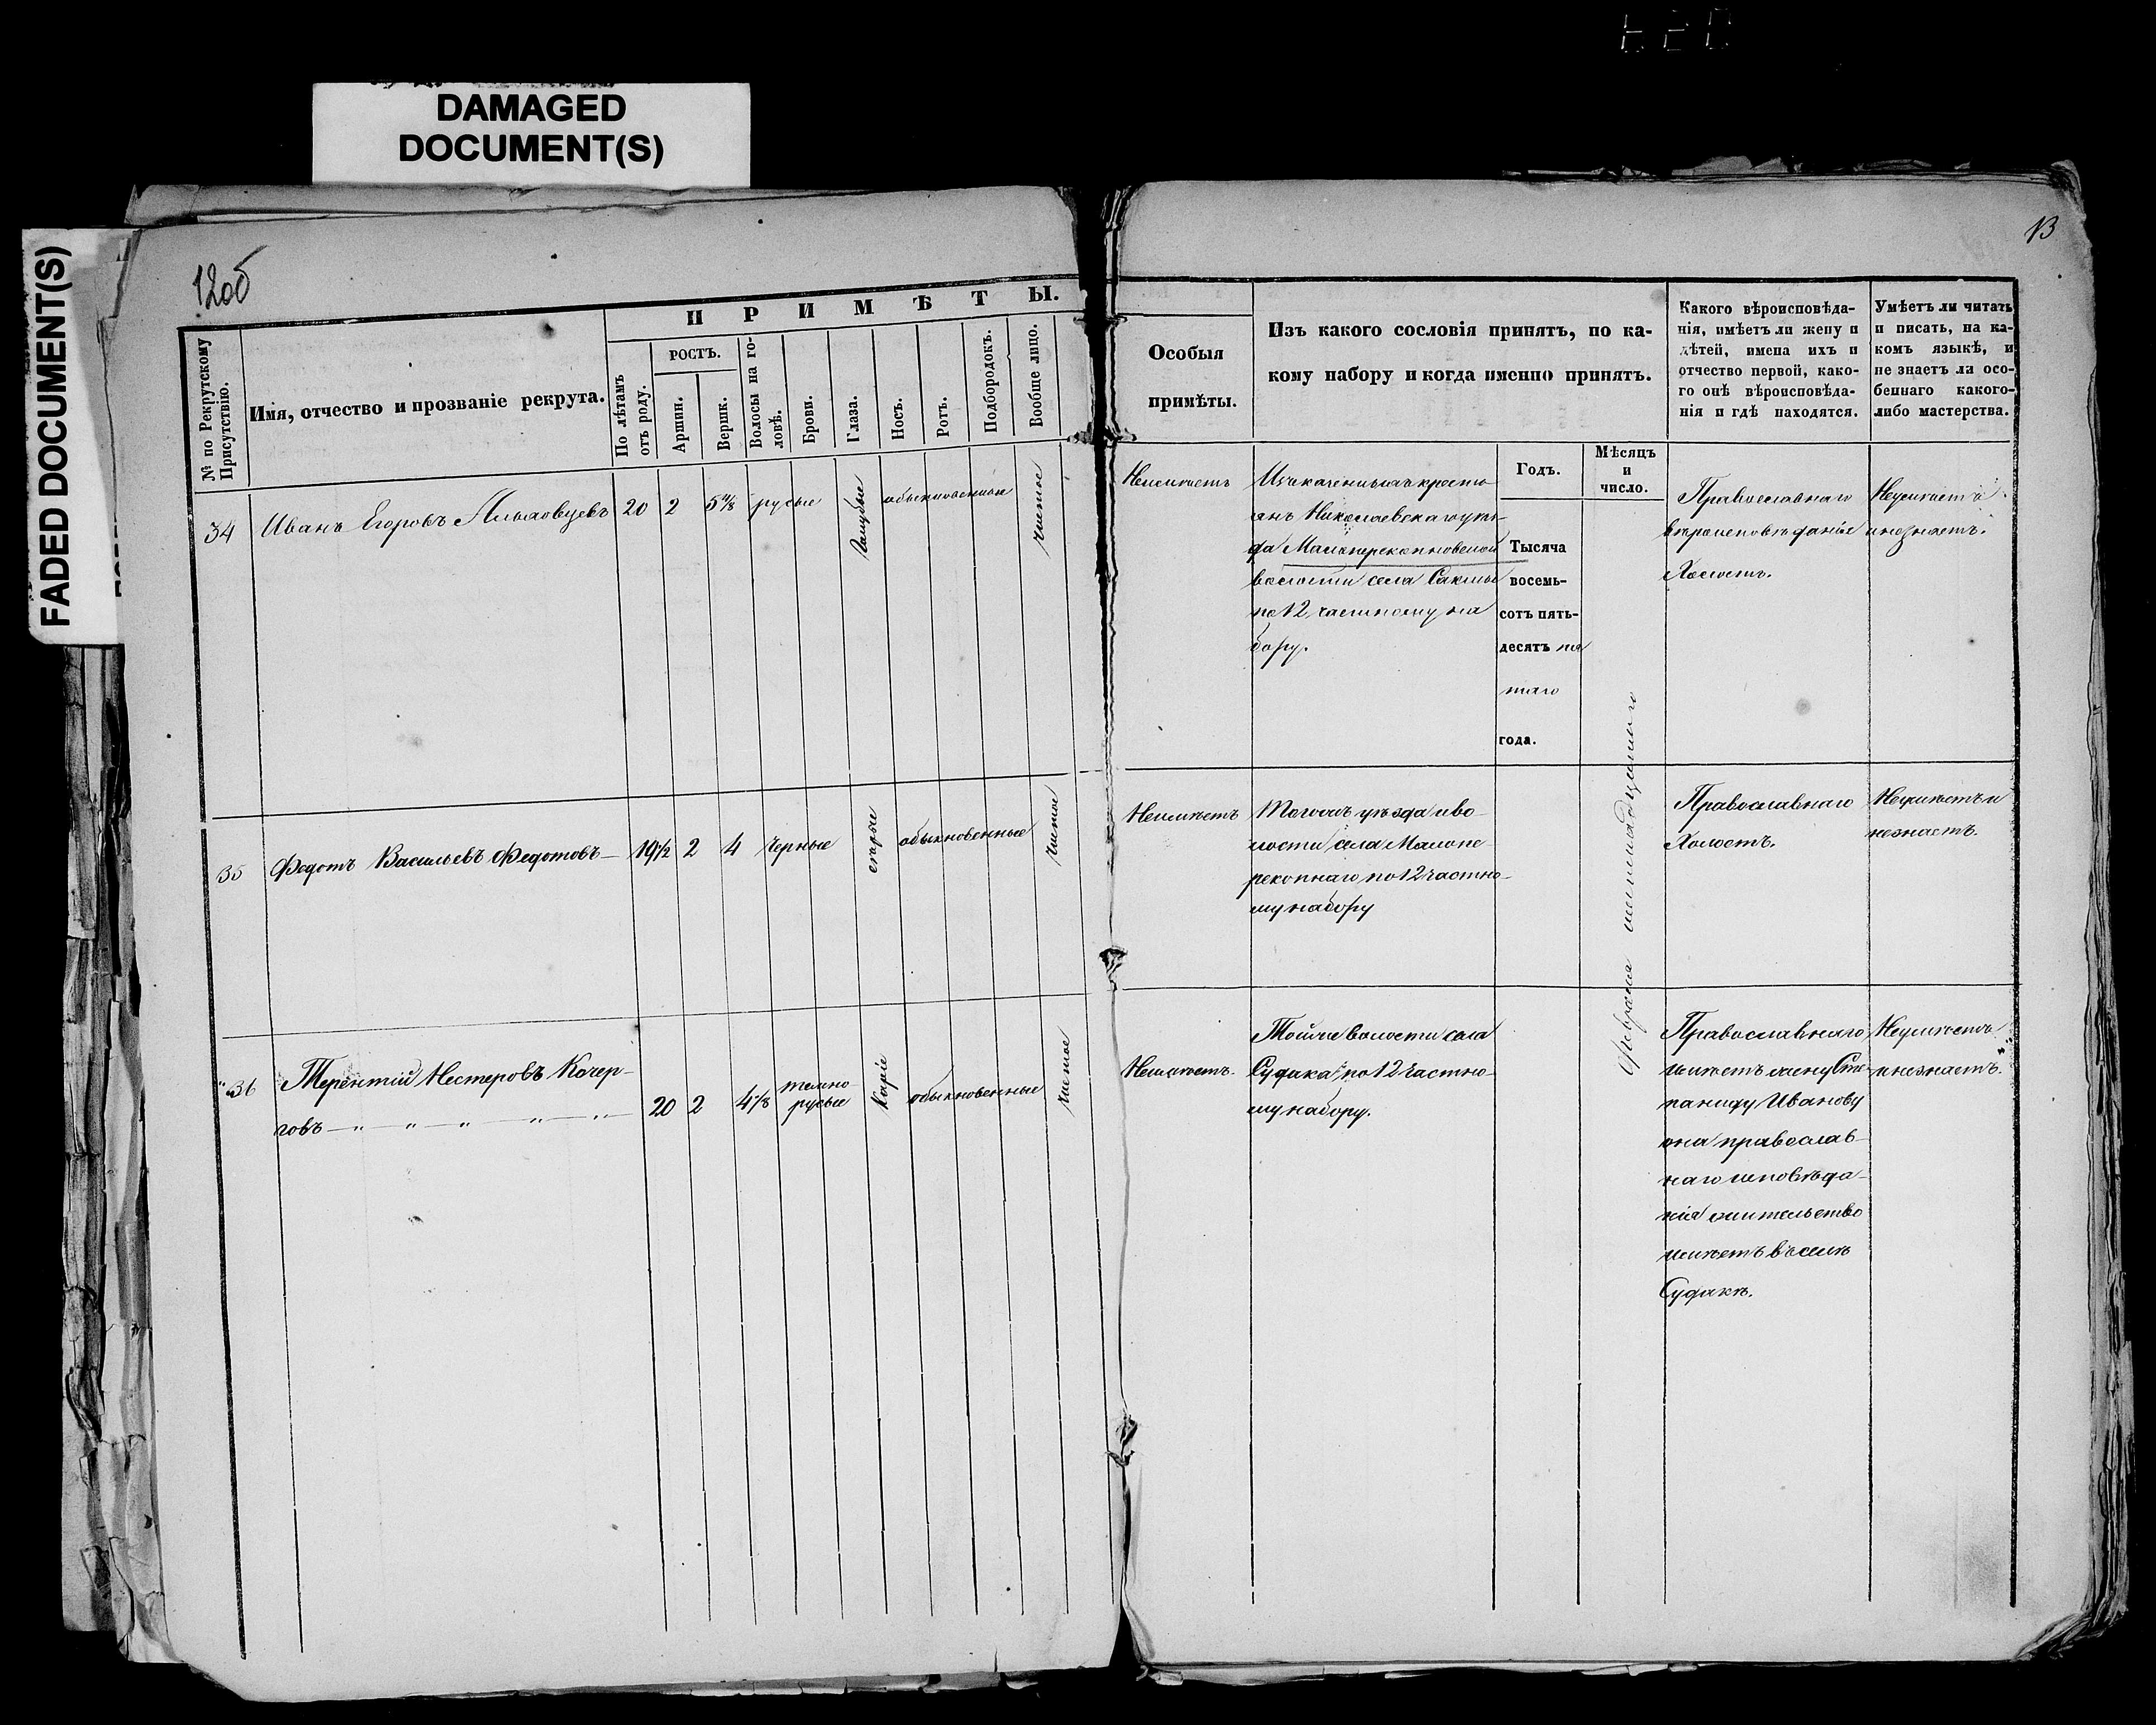 DAMAGED
DOCUMENT(S)
FADED DOCUMENT(S)
12об
13
№ по Рекрутскому
Присутствію.
Имя, отчество и прозваніе рекрута.
ПРИМѢТЫ.
По лѣтамъ
отъ роду.
РОСТЪ.
Аршин.
Вершк.
Волосы на го-
ловѣ.
Брови.
Глаза.
Носъ.
Ротъ.
Подбородокъ.
Вообще лицо.
Особыя
примѣты.
Изъ какого сословія принятъ, по ка-
кому набору и когда именно принятъ.
Какого вѣроисповѣда-
нія, имѣетъ ли жену и
дѣтей, имена ихъ и
отчество первой, како-
го онѣ вѣроисповѣда-
нія и гдѣ находятся.
Умѣетъ ли читать
и писать, на ка-
комъ языкѣ, и
не знаетъ ли осо-
беннаго какого-
либо мастерства.
Годъ.
Мѣсяцъ
и
число.
34
Иванъ Егоровъ
20
2
русые
Голубые
обыкновенные
чистое
Неимѣетъ
крестьянъ
янъ Николаевскаго уѣз-
да
волости села
по 12 частному на
бору.
Тысяча
восемь-
сотъ пять-
десятъ пя
таго
года.
Февраля
Православнаго
вѣроисповѣданія
Холостъ.
Неумѣетъ
и незнаетъ.
35
Федотъ Васильевъ Федотовъ
19½
2
4
черные
серые
обыкновенные
чистое
Неимѣетъ
Тогожъ уѣзда и во-
лости села Малопе-
рекопнаго по 12 частно-
му набору
Православнаго
Холостъ.
Неумѣетъ и
незнаетъ.
36
Терентій Нестеровъ Кочер-
говъ
20
2
4⅛
темно-
русые
Каріе
обыкновенные
чистое
Неимѣетъ.
Тойже волости села
Судака по 12 частно-
му набору.
Православнаго
имѣетъ жену Сте-
паниду Иванову
она православ-
наго исповѣда-
нія жительство
имѣетъ въ селѣ
Судакѣ.
Неумѣетъ
и незнаетъ.